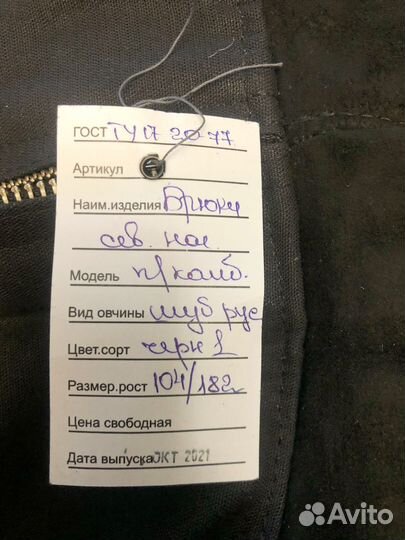 ГОСТ ТУ17 20-77
Артикул
Наим.изделия Брюки
сев. нас.
Модель п/комб.
Вид овчины шуб рус
Цвет.сорт черн 1
Размер.рост 104/182
Цена свободная
Дата выпуска ОКТ 2021
Avito